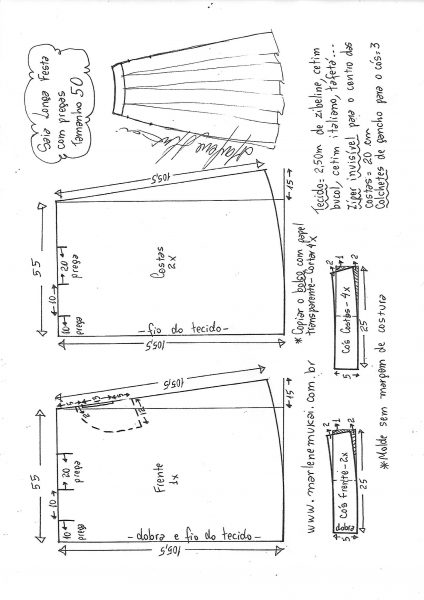 Saia Longa Festa
com pregas
Tamanho 50
Tecido= 2,50m de zibeline, cetim
bucol, cetim italiano, tafetá...
Zíper invisível para o centro das
costas= 20 cm
Colchetes de gancho para o cós=3
105,5
15
55
10
20
prega
10
prega
Costas
2x
- fio do tecido -
105,5
* Copiar o bolso com papel
transparente- Cortar 4x
2
1
2
Cós Costas- 4x
25
5
105,5
15
5
13
5
2
12
55
10
20
prega
10
prega
Frente
1x
- dobra e fio do tecido -
105,5
www.marlenemukai.com.br
2
2
Cós frente- 2x
dobra
25
5
*Molde sem margem de costura